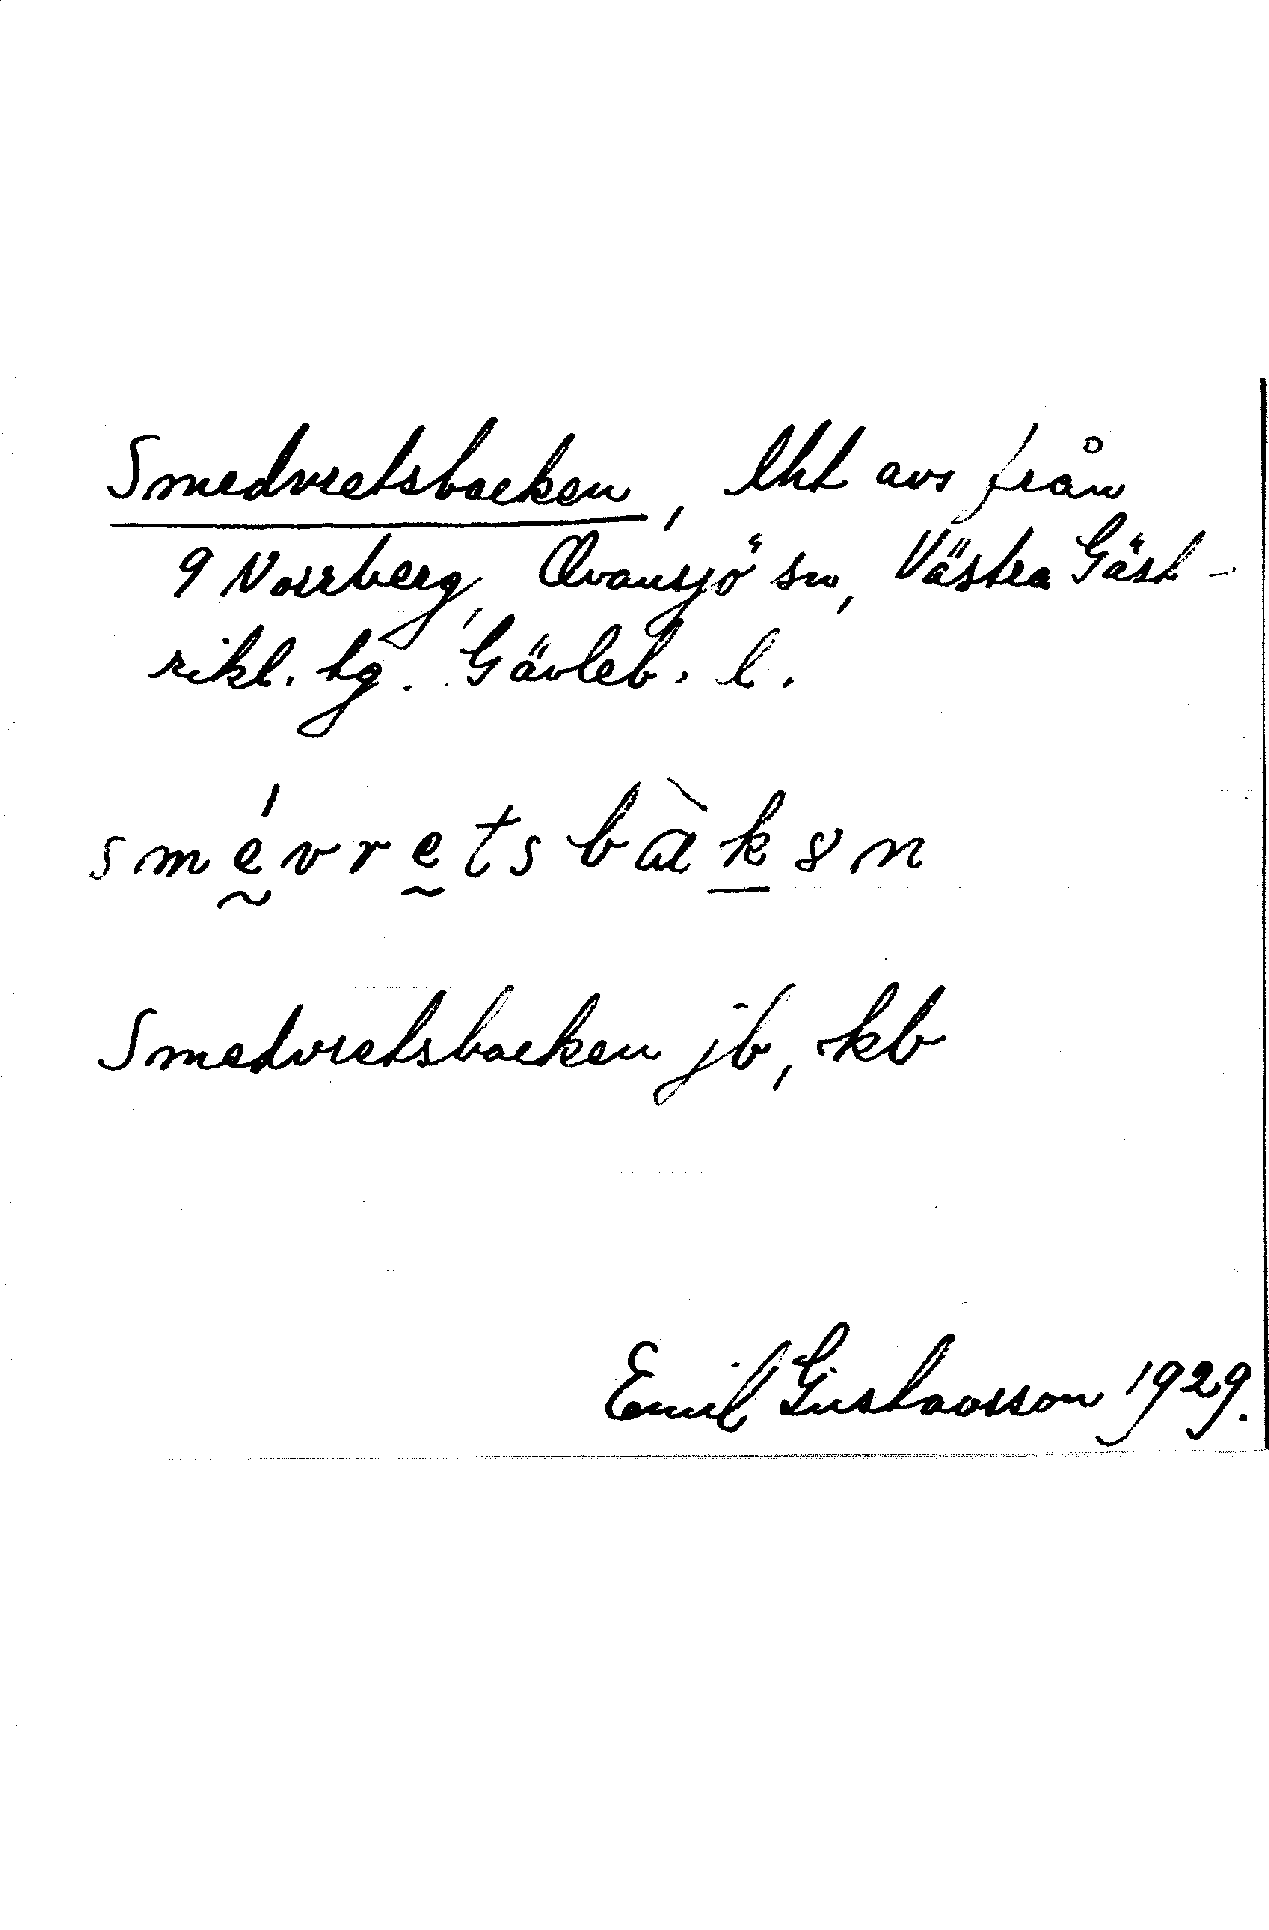 Smedvretsbacken, lht avs från
9 Norrberg, Ovansjö sn, Västra Gäst-
rikl. hg. Gävleb. l.
smévretsbàkən
Smedvretsbacken jb, kb
Emil Gustavsson 1929.